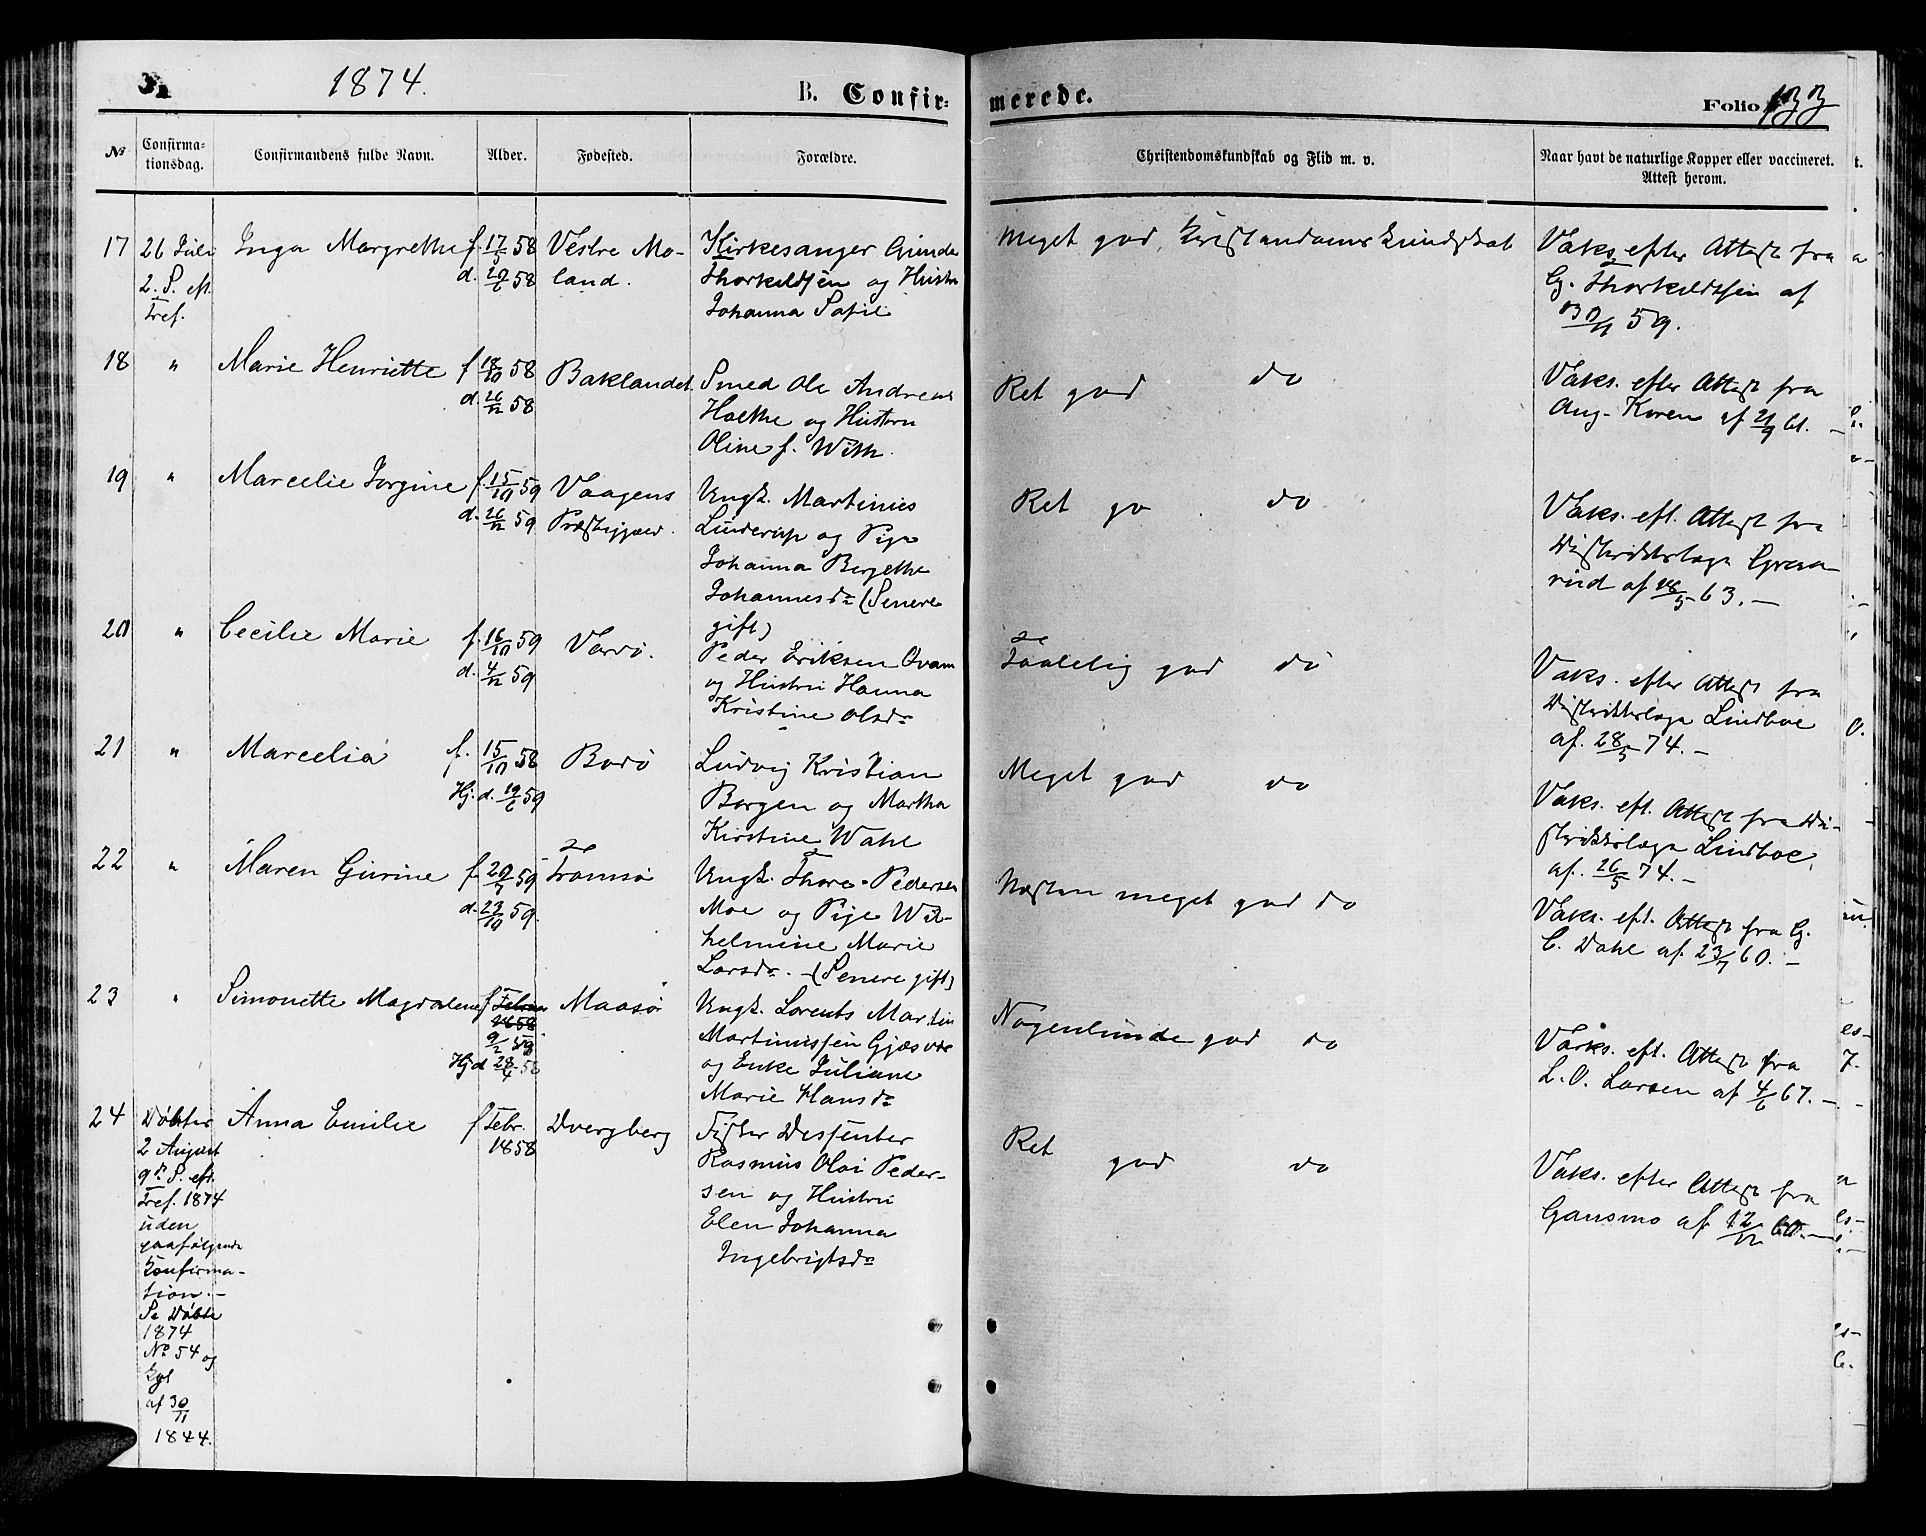 1874.
B. Confir-
merede.
Folio 133
No
Confirma-
tionsdag.
Confirmandens fulde Navn.
Alder.
Fødested.
Forældre.
Christendomskundskab og Flid m. v.
Naar havt de naturlige Kopper eller vaccineret.
Attest herom.
17
26 Juli
2. S. eft.
Tref.
Inga Margrethe
f. 17/5 58
d. 20/6 58
Vestre Mo-
land.
Kirkesanger Gunde
Thorkildsen og Hustru
Johanna Sofie
Meget god Kristendomskundskab
Vaks. efter Attest fra
G. Thorkildsen af
30/11 59.
18
"
Marie Henriette
f 18/10 58
d. 26/12 58
Baklandet
Smed Ole Andreas
Holthe og Hustru
Oline f. With
Ret god do
Vaks. efter Attest fra
Aug. Koren af 21/9 61.
19
"
Marcelie Jorgine
f. 15/10 59
d. 26/12 59
Vaagens
Præstegjæld.
Ungk. Martinus
Linderup og Pige
Johanna Bergethe
Johannesdr (Senere
gift)
Ret go do
Vaks. eft. Attest fra
Distriktslæge Graa-
rud af 16/5 63.
20
"
Cecilie Marie
f. 16/10 59
d. 4/12 59
Vardø.
Peder Eriksen Qvam
og Hustru Hanna
Kristine Olsdr
Taalelig god do
Vaks. efter Attest fra
Distriktslæge Lindboe
af. 28/5 74.
21
"
Marcelia
f. 15/10 58
Hj. d. 19/6 59
Bodø
Ludvig Kristian
Borgen og Martha
Kirstine Wahl
Meget god do
Vaks. eft. Attest fra Di-
striktslæge Lindboe
af. 26/5 74.
22
"
Maren Gurine
f. 20/7 59
d. 23/10 59.
Tromsø
Ungk. Thore Pedersen
Moe og Pige Wil-
helmine Marie
Larsdr. (Senere gift)
Næsten meget god do
Vaks. eft. Attest fra G.
C. Dahl af 23/7 60.
23
"
Simonette Magdalene
f Februar
1858
9/2 58
Hjd 28/4 58
Maasø
Ungk. Lorents Martin
Martinussen Gjæsvær
og Enke Juliane
Marie Hansdr
Nogenlunde god do
Vaks. eft. Attest fra
L. O. Larsen af 4/6 67.
24
Døbter
2 August
9de S. eft.
Tref. 1874
uden
paafølgende
Konfirma-
tion.
Se Døbte
1874
No 54 og
Kgl
af 30/11
1844.
Anna Emilie
f Febr.
1858
Dvergberg
Fisker Dissenter
Rasmus Olai Peder-
sen og Hustru
Elen Johanna
Ingebrigtsdr
Ret god do
Vaks. efter Attest fra
Gansmo af 12/12 60.